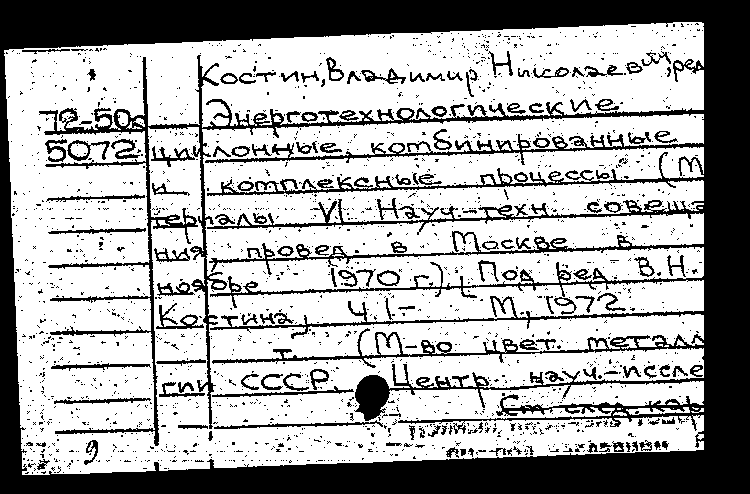 Костин, Владимир Николаевич, ред
72-50с Энерготехнологические
5072 циклонные, комбинированные
и комплексные процессы. (М
териалы VI Науч.-техн. совеща
ния, провед. в Москве в
ноябре 1970 г.), [Под ред. В.Н.
Костина, Ч 1.- М., 1972.
т. (М-во цвет. металл
гии СССР. Центр. науч.-иссле
См. след. кар
9